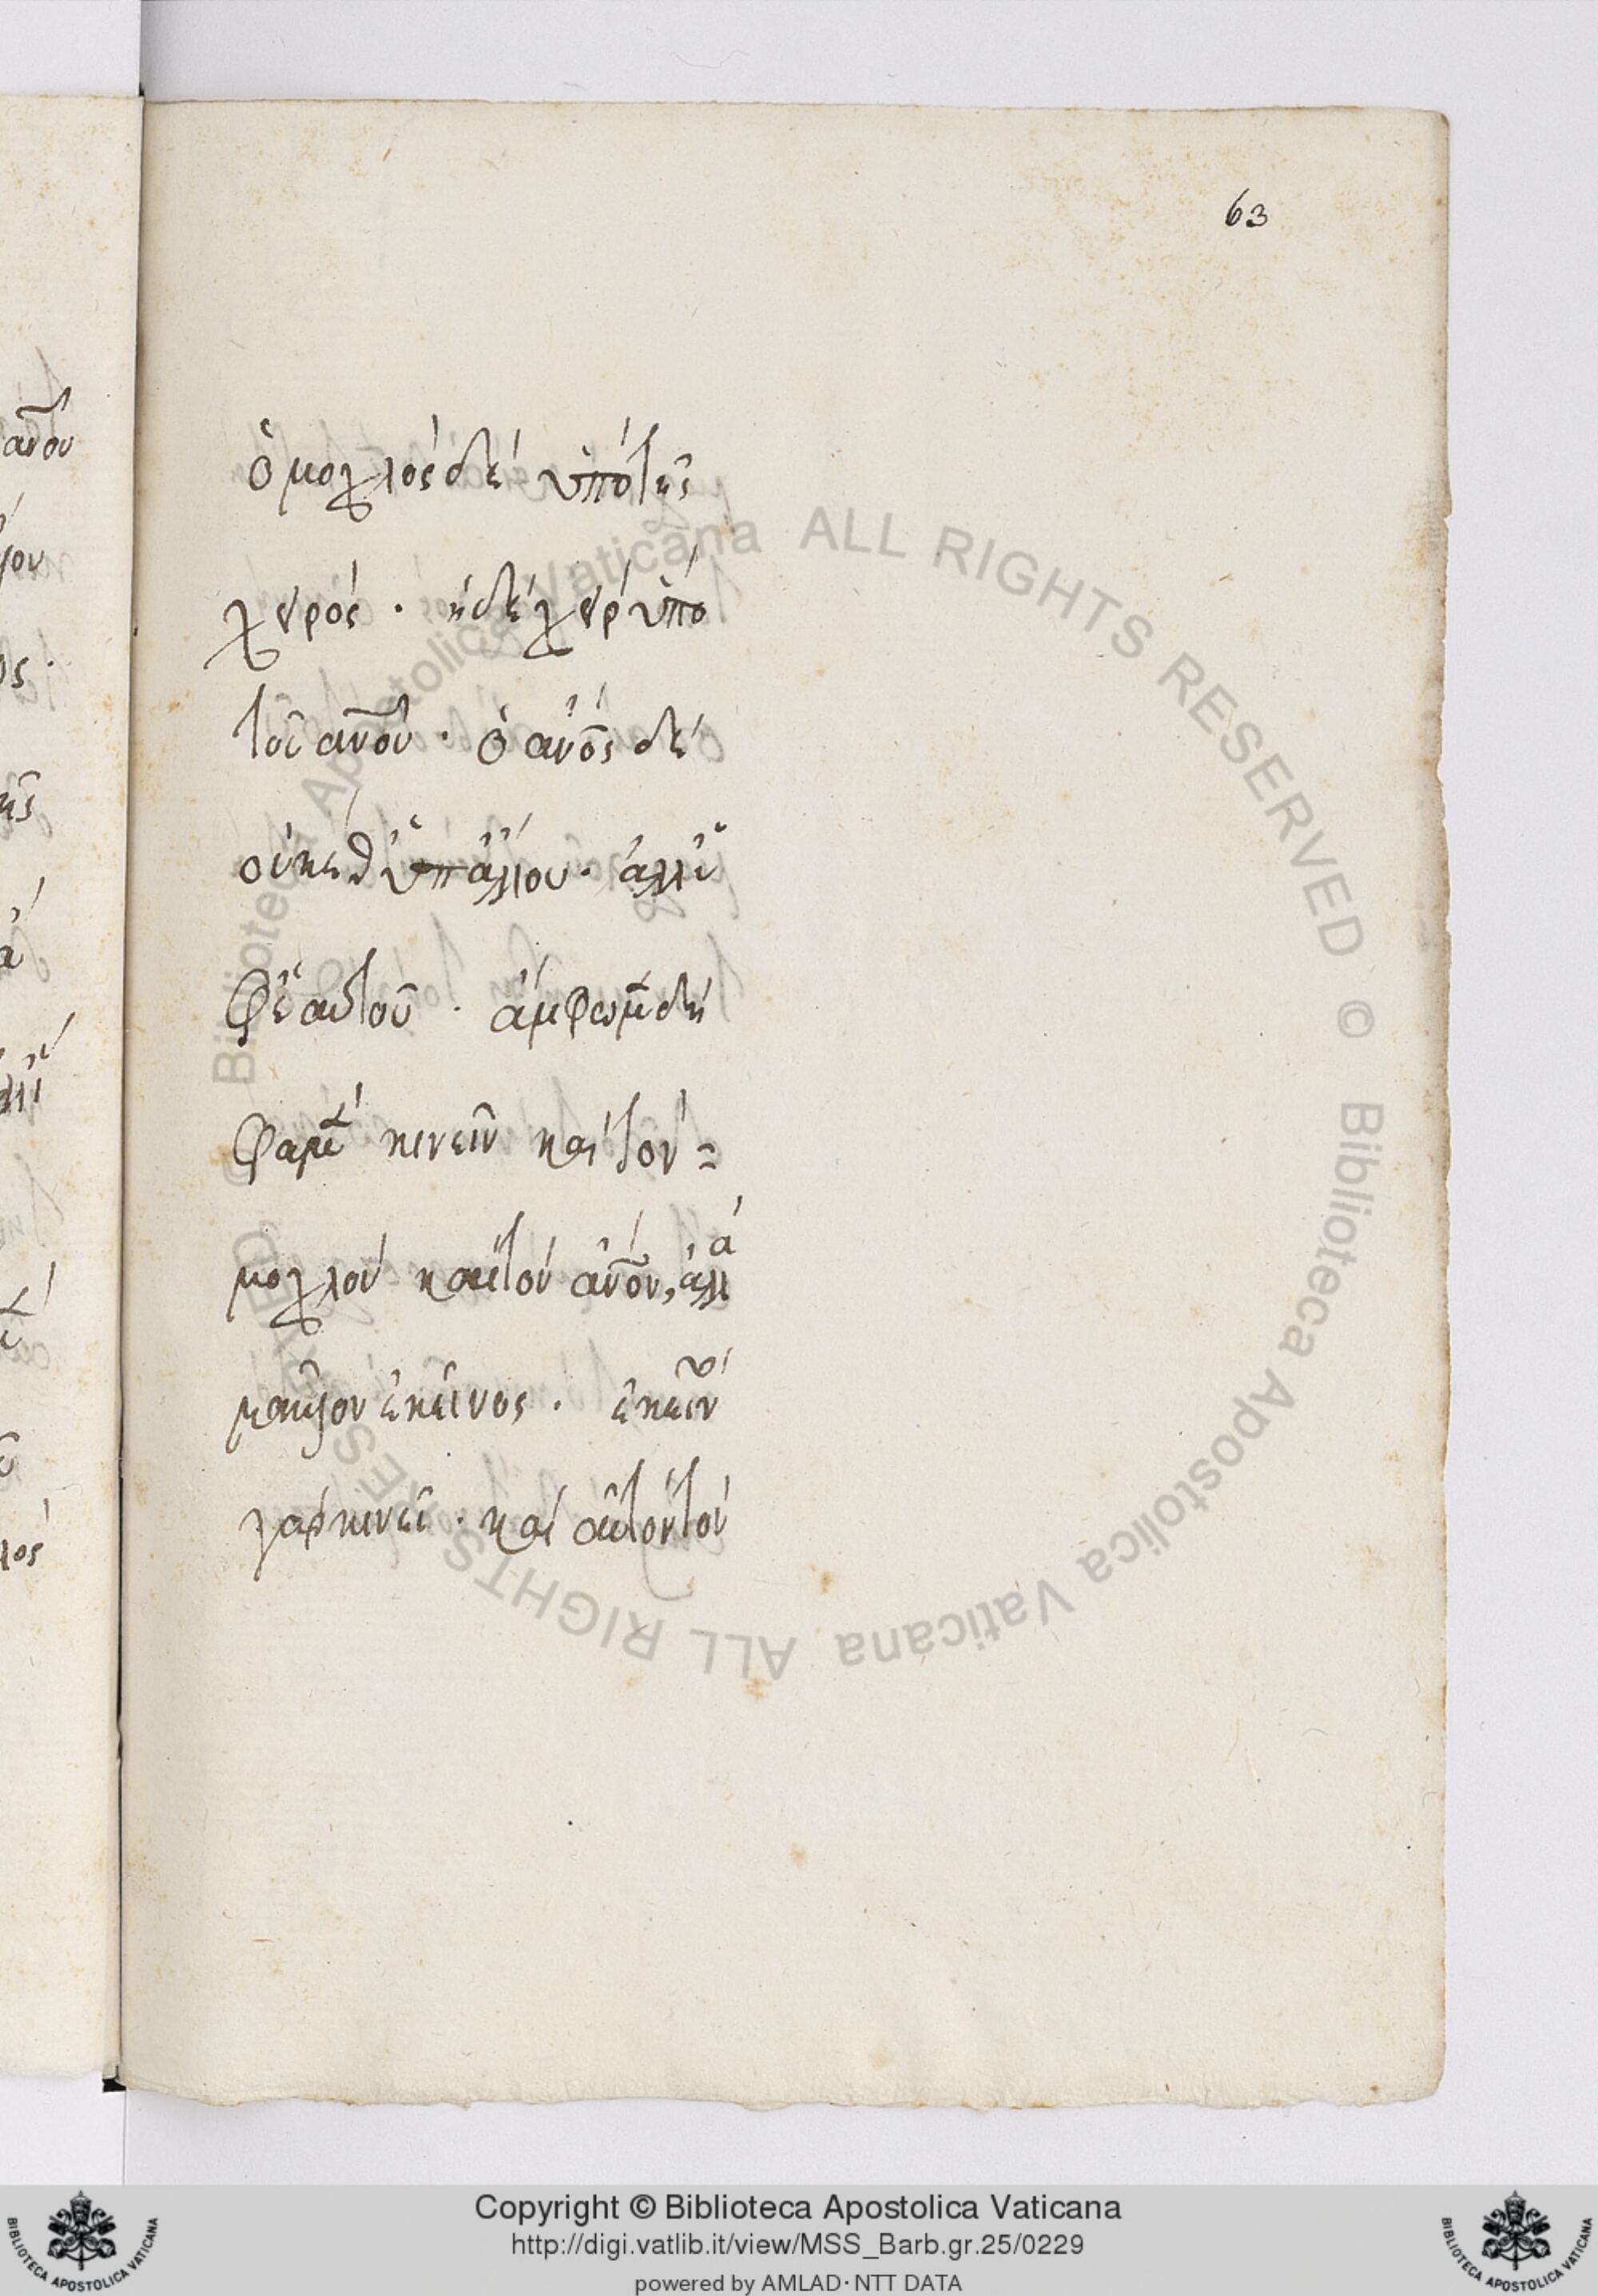 63
ὁ μοχλὸς δὲ ὑπὸ τῆς
χειρός · ἡ δὲ χεὶρ ὑπὸ
τοῦ ἀνου · ὁ ἄνος δὲ
οὐκέθ ὑπ ἄλλου · ἀλλ
ὑφ ἑαυτοῦ · ἄμφω μὲν δὴ
φαμὲν κινεῖν καὶ τὸν =
μοχλὸν καὶ τὸν ἄνον, ἀλλὰ
μᾶλλον ἐκεῖνος · ἐκεῖν
γὰρ κινεῖ · καὶ αὐτὸν τὸν
Biblioteca Apostolica Vaticana ALL RIGHTS RESERVED © Biblioteca Apostolica Vaticana ALL RIGHTS RESERVED ©
Copyright © Biblioteca Apostolica Vaticana
http://digi.vatlib.it/view/MSS_Barb.gr.25/0229
powered by AMLAD·NTT DATA
BIBLIOTECA APOSTOLICA VATICANA
BIBLIOTECA APOSTOLICA VATICANA